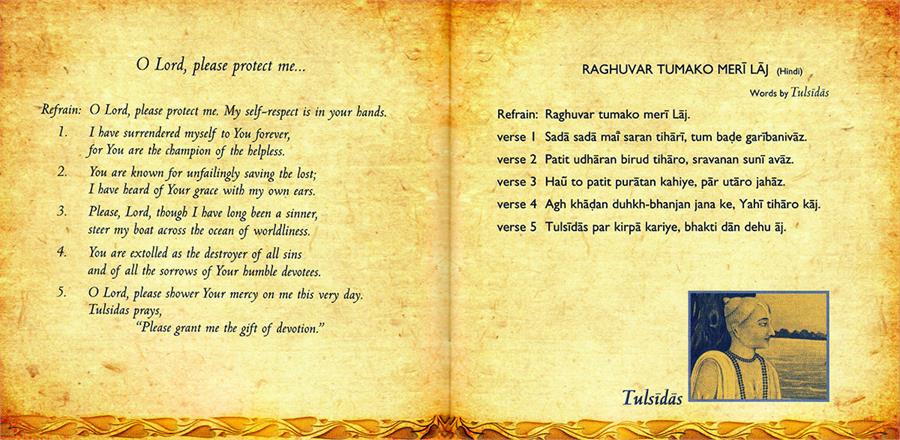 O Lord, please protect me...
Refrain: O Lord, please protect me. My self-respect is in your hands.
1. I have surrendered myself to You forever,
for You are the champion of the helpless.
2. You are known for unfailingly saving the lost;
I have heard of Your grace with my own ears.
3. Please, Lord, though I have long been a sinner,
steer my boat across the ocean of worldliness.
4. You are extolled as the destroyer of all sins
and of all the sorrows of Your humble devotees.
5. O Lord, please shower Your mercy on me this very day.
Tulsidas prays,
"Please grant me the gift of devotion."
RAGHUVAR TUMAKO MERĪ LĀJ (Hindi)
Words by Tulsīdās
Refrain: Raghuvar tumako merī Lāj.
verse 1 Sadā sadā maĩ saran tihārī, tum baḍe garībanivāz.
verse 2 Patit udhāran birud tihāro, sravanan sunī avāz.
verse 3 Haũ to patit purātan kahiye, pār utāro jahāz.
verse 4 Agh khāḍan duhkh-bhanjan jana ke, Yahī tihāro kāj.
verse 5 Tulsīdās par kirpā kariye, bhakti dān dehu āj.
Tulsīdās